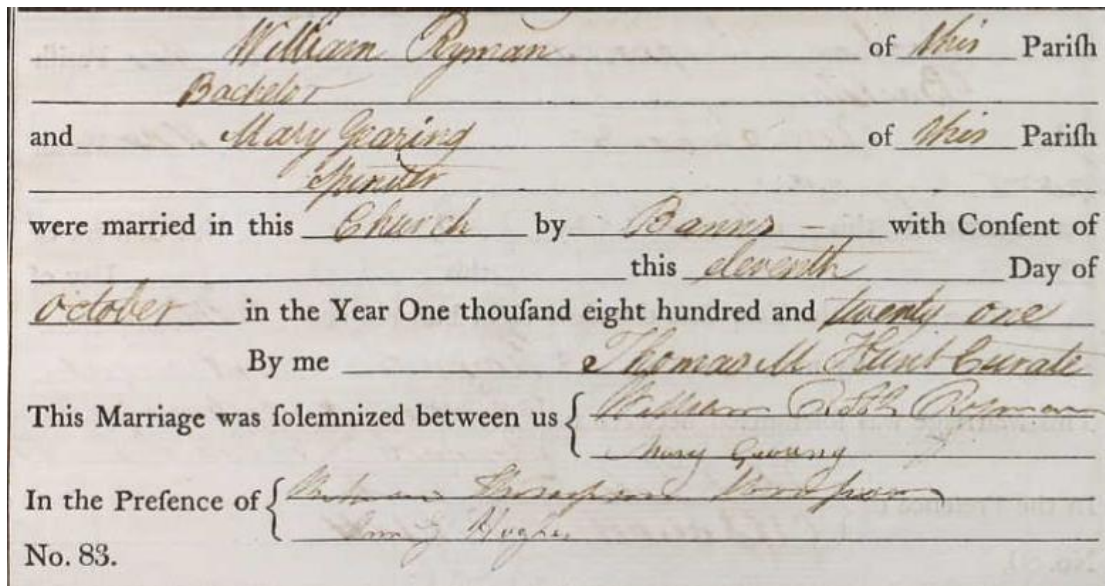 William Ryman of this Pariſh
Bachelor
and Mary Gearing of this Pariſh
Spinster
were married in this Church by Banns – with Conſent of
this eleventh Day of
October in the Year One thouſand eight hundred and twenty one
By me Thomas M. Hunt Curate
This Marriage was ſolemnized between us { William Ryman
Mary Gearing
In the Preſence of { Thompson
Hughes
No. 83.